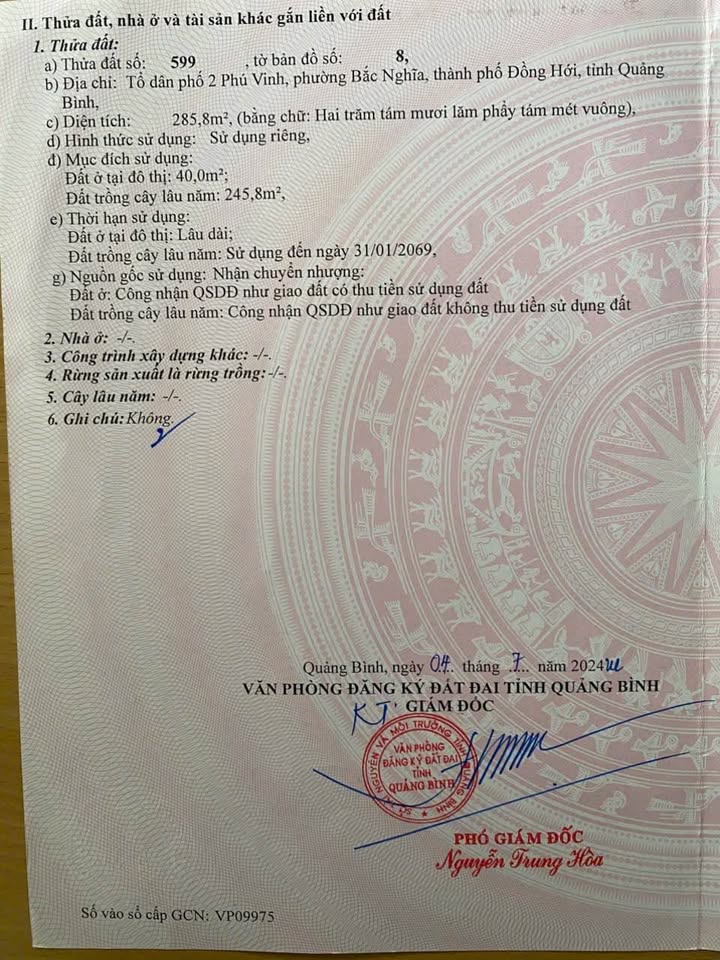 II. Thửa đất, nhà ở và tài sản khác gắn liền với đất
1. Thửa đất:
a) Thửa đất số: 599 , tờ bản đồ số: 8,
b) Địa chỉ: Tổ dân phố 2 Phú Vinh, phường Bắc Nghĩa, thành phố Đồng Hới, tỉnh Quảng
Bình,
c) Diện tích: 285,8m², (bằng chữ: Hai trăm tám mươi lăm phẩy tám mét vuông),
d) Hình thức sử dụng: Sử dụng riêng,
đ) Mục đích sử dụng:
Đất ở tại đô thị: 40,0m²;
Đất trồng cây lâu năm: 245,8m²,
e) Thời hạn sử dụng:
Đất ở tại đô thị: Lâu dài;
Đất trồng cây lâu năm: Sử dụng đến ngày 31/01/2069,
g) Nguồn gốc sử dụng: Nhận chuyển nhượng:
Đất ở: Công nhận QSDĐ như giao đất có thu tiền sử dụng đất
Đất trồng cây lâu năm: Công nhận QSDĐ như giao đất không thu tiền sử dụng đất
2. Nhà ở: -/-.
3. Công trình xây dựng khác: -/-.
4. Rừng sản xuất là rừng trồng: -/-.
5. Cây lâu năm: -/-.
6. Ghi chú: Không.
Quảng Bình, ngày 04 tháng 7 năm 2024
VĂN PHÒNG ĐĂNG KÝ ĐẤT ĐAI TỈNH QUẢNG BÌNH
KT. GIÁM ĐỐC
SỞ TÀI NGUYÊN VÀ MÔI TRƯỜNG TỈNH QUẢNG BÌNH
VĂN PHÒNG
ĐĂNG KÝ ĐẤT ĐAI
TỈNH
QUẢNG BÌNH
PHÓ GIÁM ĐỐC
Nguyễn Trung Hòa
Số vào sổ cấp GCN: VP09975